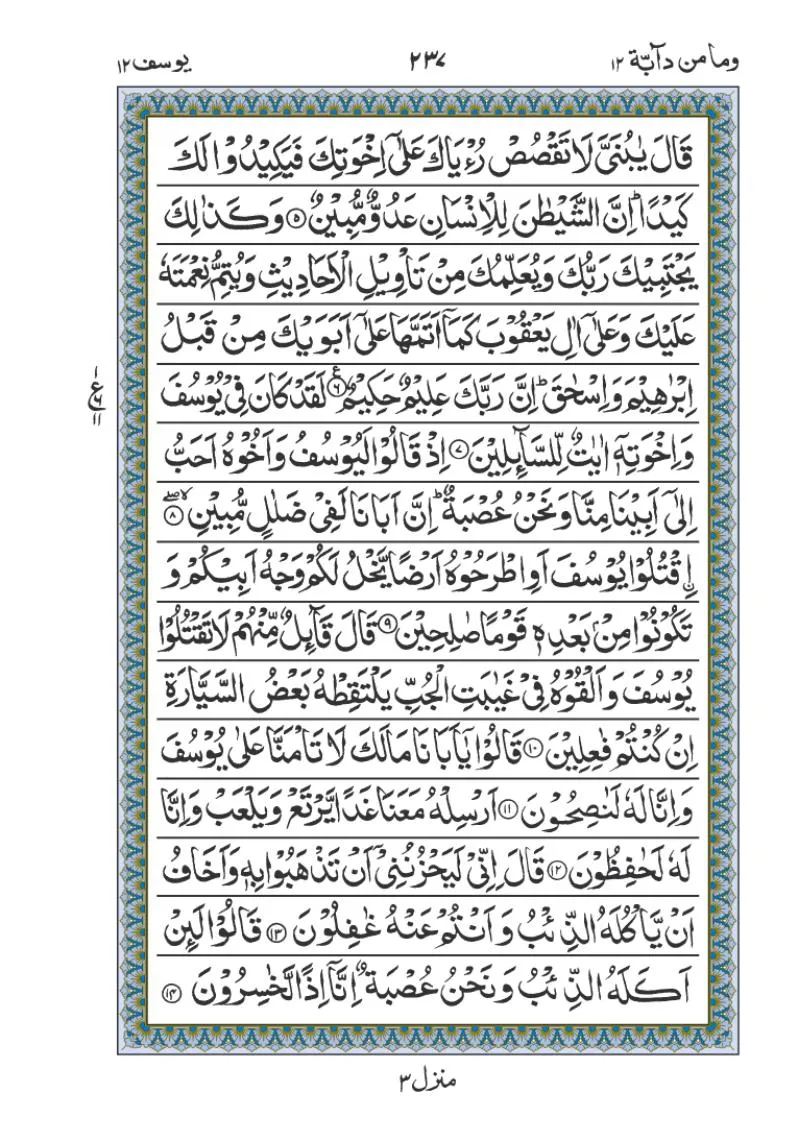 وما من دآبّة ۱۲
۲۳۷
یوسف ۱۲
قَالَ يٰبُنَىَّ لَا تَقْصُصْ رُءْيَاكَ عَلٰٓى اِخْوَتِكَ فَيَكِيْدُوْا لَكَ
كَيْدًا ؕ اِنَّ الشَّيْطٰنَ لِلْاِنْسَانِ عَدُوٌّ مُّبِيْنٌ ۵ وَكَذٰلِكَ
يَجْتَبِيْكَ رَبُّكَ وَيُعَلِّمُكَ مِنْ تَاْوِيْلِ الْاَحَادِيْثِ وَيُتِمُّ نِعْمَتَهٗ
عَلَيْكَ وَعَلٰٓى اٰلِ يَعْقُوْبَ كَمَاۤ اَتَمَّهَا عَلٰٓى اَبَوَيْكَ مِنْ قَبْلُ
اِبْرٰهِيْمَ وَاِسْحٰقَ ؕ اِنَّ رَبَّكَ عَلِيْمٌ حَكِيْمٌ ۶ؑ لَقَدْ كَانَ فِىْ يُوْسُفَ
ع
۱
۶
۱۱
وَاِخْوَتِهٖۤ اٰيٰتٌ لِّلسَّآئِلِيْنَ ۷ اِذْ قَالُوْا لَيُوْسُفُ وَاَخُوْهُ اَحَبُّ
اِلٰٓى اَبِيْنَا مِنَّا وَنَحْنُ عُصْبَةٌ ؕ اِنَّ اَبَانَا لَفِىْ ضَلٰلٍ مُّبِيْنٍ ۸ۖۚ
اۨقْتُلُوْا يُوْسُفَ اَوِ اطْرَحُوْهُ اَرْضًا يَّخْلُ لَكُمْ وَجْهُ اَبِيْكُمْ وَ
تَكُوْنُوْا مِنْۢ بَعْدِهٖ قَوْمًا صٰلِحِيْنَ ۹ قَالَ قَآئِلٌ مِّنْهُمْ لَا تَقْتُلُوْا
يُوْسُفَ وَاَلْقُوْهُ فِىْ غَيٰبَتِ الْجُبِّ يَلْتَقِطْهُ بَعْضُ السَّيَّارَةِ
اِنْ كُنْتُمْ فٰعِلِيْنَ ۱۰ قَالُوْا يٰۤاَبَانَا مَا لَكَ لَا تَاْمَنَّا عَلٰى يُوْسُفَ
وَاِنَّا لَهٗ لَنٰصِحُوْنَ ۱۱ اَرْسِلْهُ مَعَنَا غَدًا يَّرْتَعْ وَيَلْعَبْ وَاِنَّا
لَهٗ لَحٰفِظُوْنَ ۱۲ قَالَ اِنِّىْ لَيَحْزُنُنِىْۤ اَنْ تَذْهَبُوْا بِهٖ وَاَخَافُ
اَنْ يَّاْكُلَهُ الذِّئْبُ وَاَنْتُمْ عَنْهُ غٰفِلُوْنَ ۱۳ قَالُوْا لَئِنْ
اَكَلَهُ الذِّئْبُ وَنَحْنُ عُصْبَةٌ اِنَّاۤ اِذًا لَّخٰسِرُوْنَ ۱۴
منزل ۳